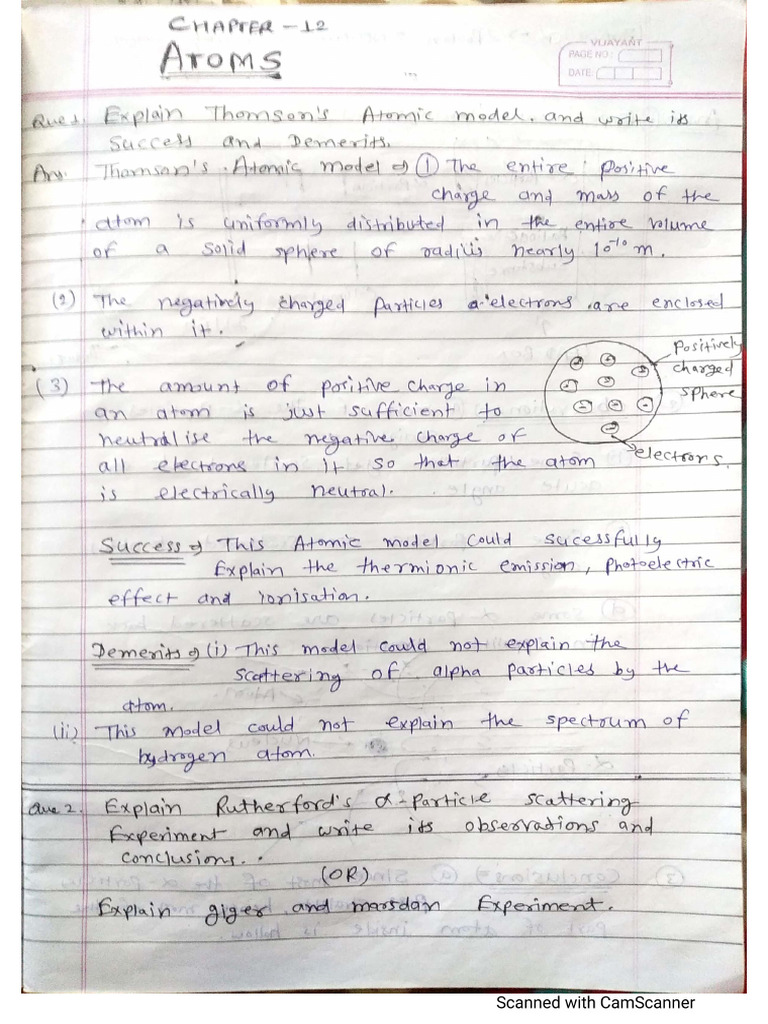 CHAPTER - 12
ATOMS
VIJAYANT
PAGE NO.:
DATE:
Que 1. Explain Thomson's Atomic model. and write its
Success and Demerits.
Ans. Thomson's Atomic model ⇒ (1) The entire positive
charge and mass of the
atom is uniformly distributed in the entire volume
of a solid sphere of radius nearly 10⁻¹⁰ m.
(2) The negatively charged particles electrons are enclosed
within it.
(3) The amount of positive charge in
an atom is just sufficient to
neutralise the negative charge of
all electrons in it so that the atom
is electrically neutral.
Positively
charged
sphere
electrons.
Success ⇒ This Atomic model could sucessfully
Explain the thermionic emission, Photoelectric
effect and ionisation.
Demerits ⇒ (i) This model could not explain the
Scattering of alpha particles by the
atom.
(ii) This model could not explain the spectrum of
hydrogen atom.
Que 2. Explain Rutherford's α-Particle scattering
Experiment and write its observations and
conclusions.
(OR)
Explain giger and marsdan Experiment.
Scanned with CamScanner